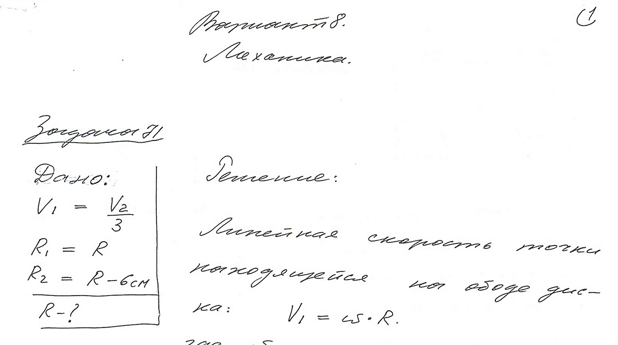 1
Вариант 8.
Механика.
Задача 71
Дано:
V1 = V2/3
R1 = R
R2 = R – 6 см
R – ?
Решение:
Линейная скорость точки
находящейся на ободе дис-
ка: V1 = ω · R.